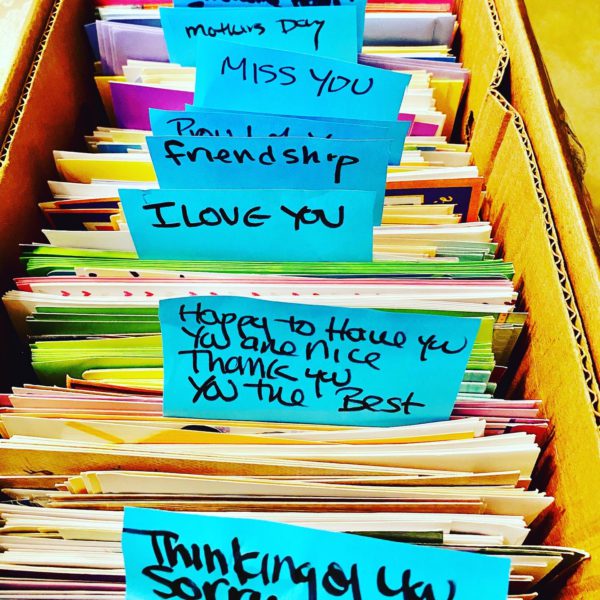 Mothers Day
MISS YOU
Friendship
I LOVE YOU
Happy to Have you
You are nice
Thank you
You the Best
Thinking of you
Sorry